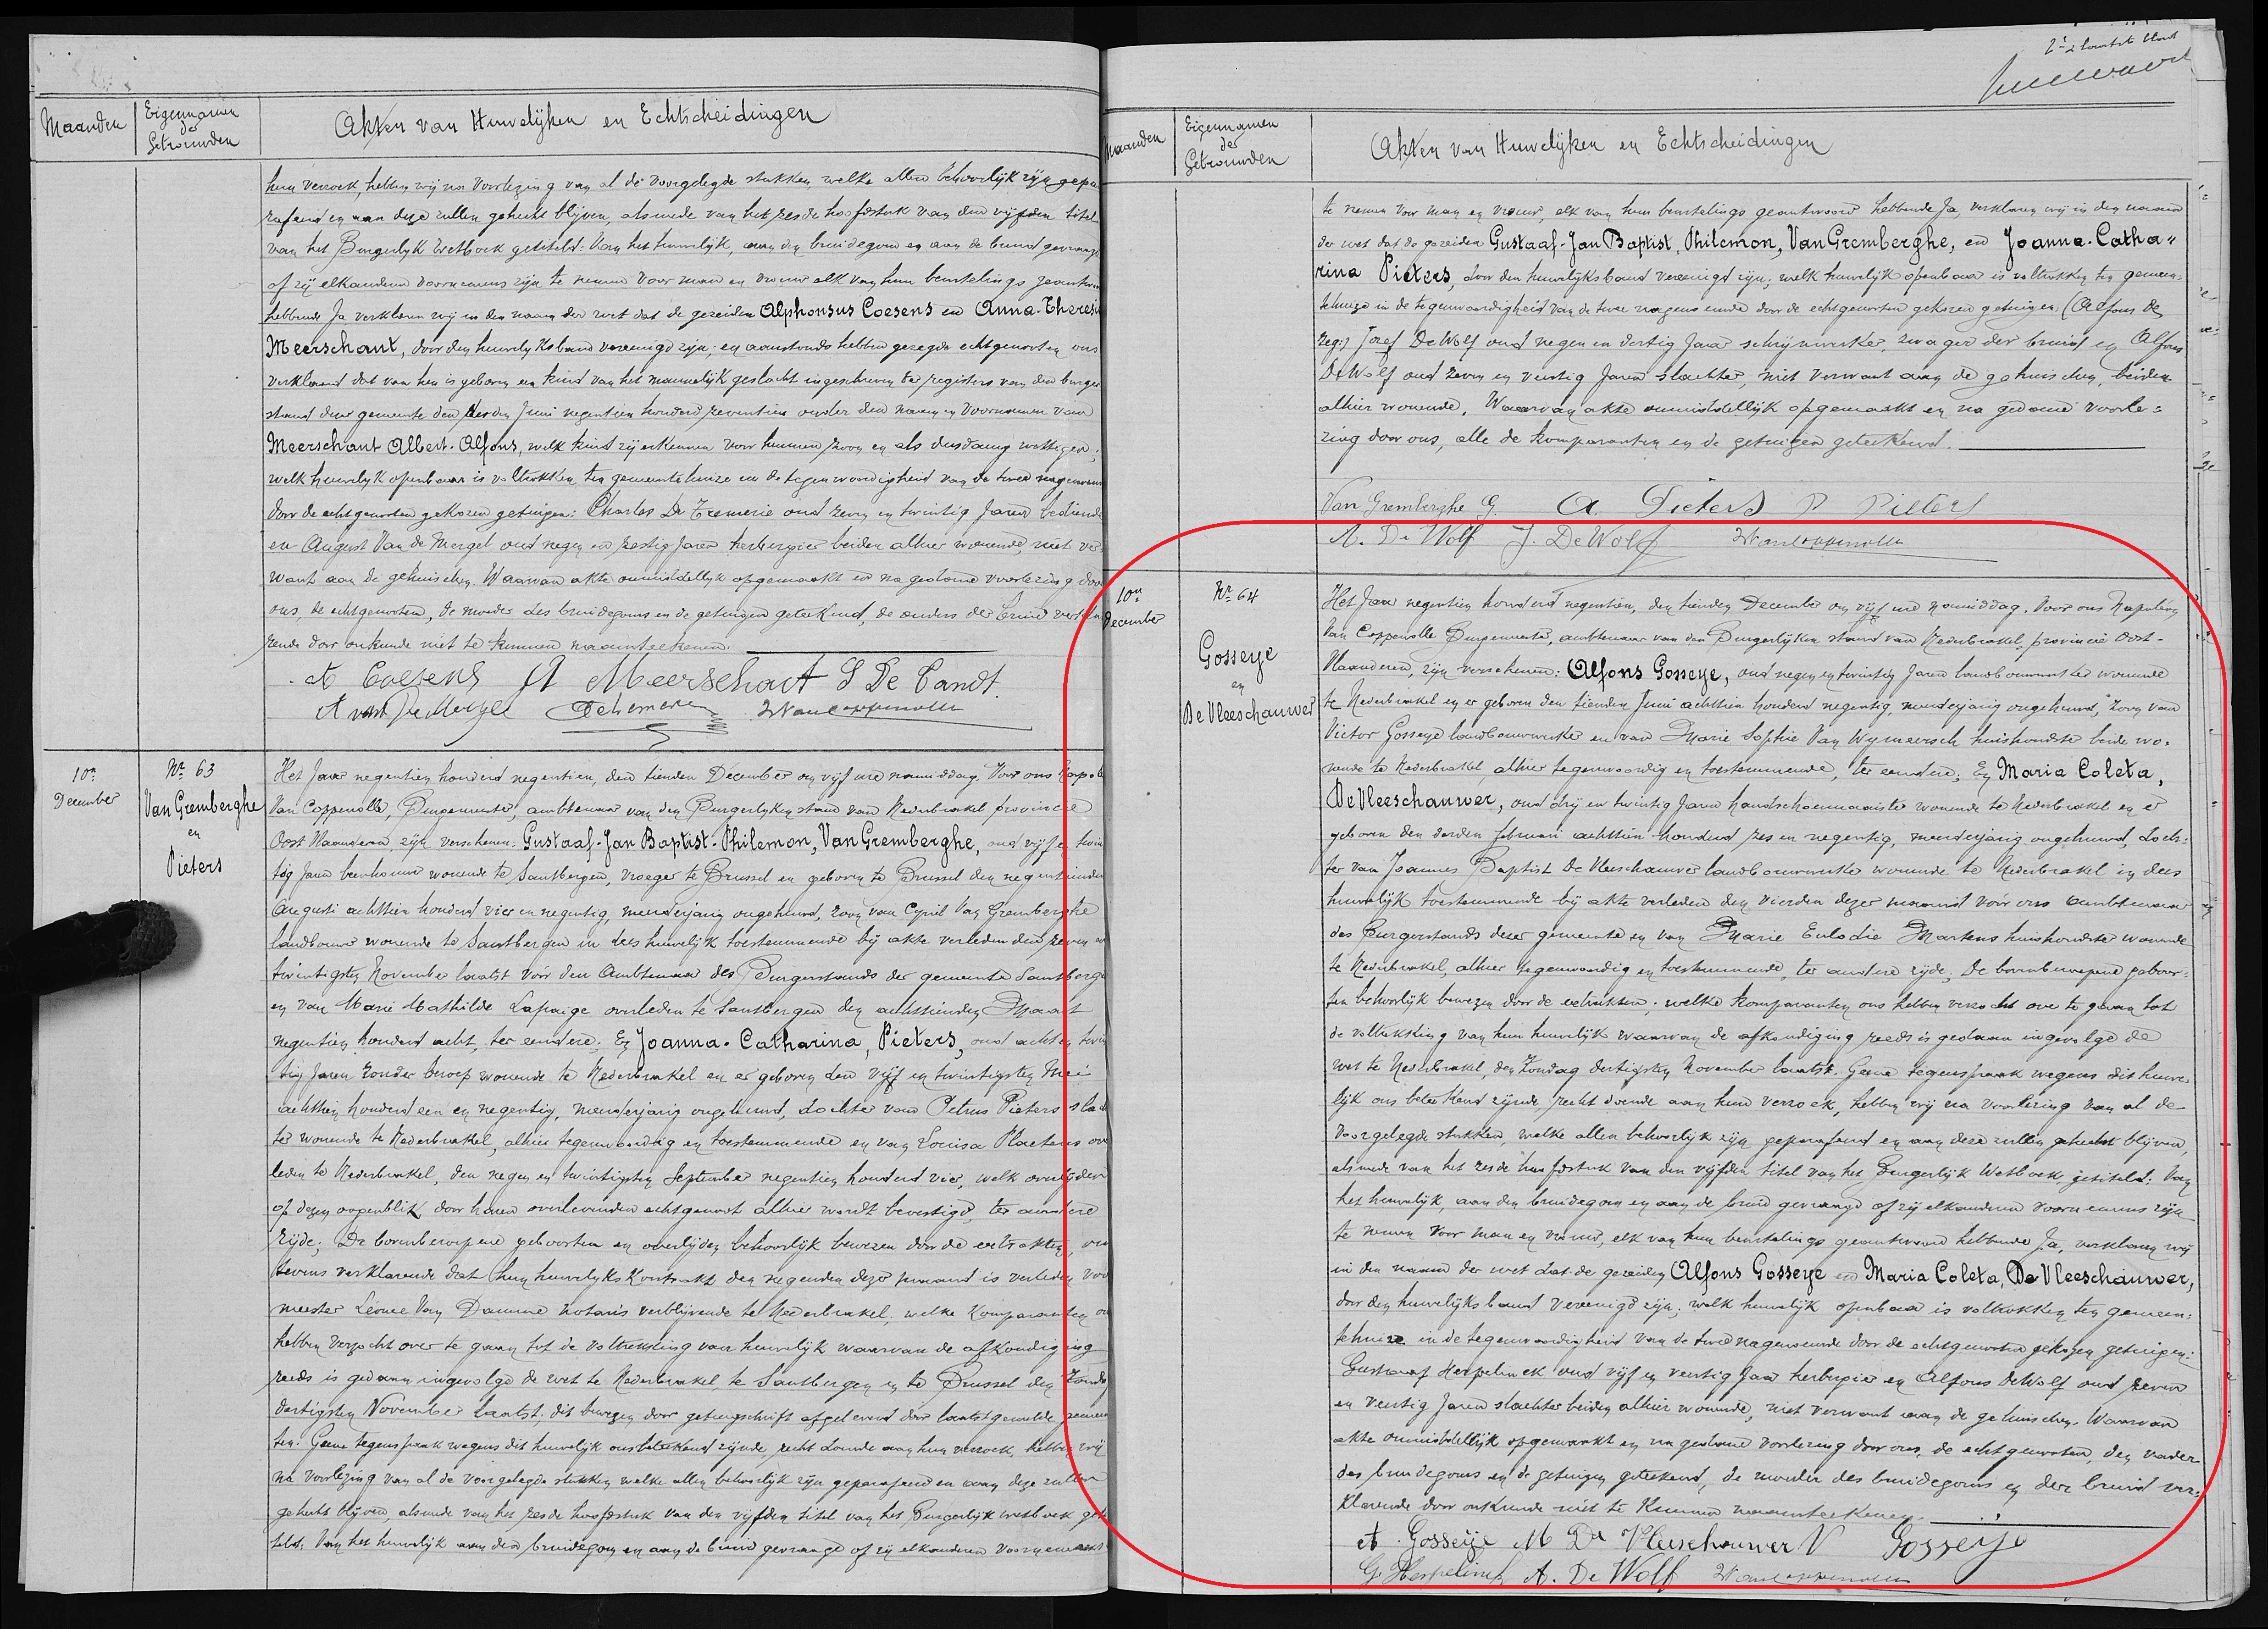 Maanden
Eigennamen
der
Getrouwden
Akten van Huwelijken en Echtscheidingen
hun verzoek, hebben wij na voorlezing van al de voorgelegde stukken, welke allen behoorlijk zijn gepa
rafeerd en aan deze zullen gehecht blijven, alsmede van het zesde hoofdstuk van den vijfden titel
van het Burgerlyk Wetboek getiteld: Van het huwelijk, aan den bruidegom en aan de bruid gevraagd
of zij elkanderen voornemens zijn te nemen voor man en vrouw elk van hun beurtelings geantwoo
hebbende Ja verklaren wij in den naam der wet dat de gezeiden Alphonsus Coesens en Anna-Theresia
Meerschaut, door den huwelyksband vereenigd zijn; en aanstonds hebben gezegde echtgenooten ons
verklaard dat van hen is geboren een kind van het mannelijk geslacht ingeschreven ter registers van den burger
stand dezer gemeente den derden Juni negentien honderd zeventien onder den naam en voornamen van
Meerschaut Albert-Alfons, welk kind zij erkennen voor hunnen zoon en als dusdanig wettigen;
welk huwelyk openbaar is voltrokken ten gemeentehuize in de tegenwoordigheid van de twee nagenoemde
door de echtgenooten gekozen getuigen: Charles De Tremerie oud zeven en twintig Jaren bediende
en August Van de Mergel oud negen en zestig Jaren herbergier beiden alhier wonende, niet ver-
want aan de gehuischen. Waarvan akte onmiddellyk opgemaakt en na gedane voorlezing door
ons, de echtgenooten, de moeder des bruidegoms en de getuigen geteekend, de ouders der bruid verkla
rende door onkunde niet te kunnen naamteekenen.
A Coesens A Meerschaut S De Candt
A van De Mergel
10n
December
Nr 63
Van Gremberghe
en
Pieters
Het Jaar negentien honderd negentien, den tienden December om vijf ure namiddag. Voor ons Napole
Van Coppenolle, Burgemeester, ambtenaar van den Burgerlyken stand van Nederbrakel provincie
Oost Vlaanderen zijn verschenen: Gustaaf-Jan Baptist-Philemon, Van Gremberghe, oud vijf en twin
tig Jaren beenhouwer wonende te Santbergen, vroeger te Brussel en geboren te Brussel den negentienden
Augusti achttien honderd vier en negentig, meerderjarig ongehuwd, zoon van Cyriel Van Gremberghe
landbouwer wonende te Santbergen in dees huwelijk toestemmende bij akte verleden den zeven en
twintigsten November laatst voor den Ambtenaar des Burgerstands der gemeente Santbergen
en van Marie Mathilde Lapaige overleden te Santbergen den achttienden Maart
negentien honderd acht, ter eendere; En Joanna-Catharina, Pieters, oud acht en twin
tig Jaren zonder beroep wonende te Nederbrakel en er geboren den vijf en twintigsten Mei
achttien honderd een en negentig, meerderjarig ongehuwd, dochter van Petrus Pieters slach
ter wonende te Nederbrakel, alhier tegenwoordig en toestemmende en van Louisa Plaetens over
leden te Nederbrakel, den negen en twintigsten September negentien honderd vier, welk overlijden
op dezen oogenblik door haren overlevenden echtgenoot alhier wordt bevestigd, ter andere
zijde; De bovenberoepene geboorten en overlijden behoorlijk bewezen door de extrakten, ons
tevens verklarende dat hun huwelyks kontrakt den negenden dezer maand is verleden voor
meester Léonce Van Damme notaris verblijvende te Nederbrakel, welke komparanten ons
hebben verzocht over te gaan tot de voltrekking van huwelijk waarvan de afkondiging
reeds is gedaan ingevolge de wet te Nederbrakel, te Santbergen en te Brussel den Zondag
dertigsten November laatst; dit bewezen door getuigschrift afgeleverd door laatstgemelde gemeen
ten. Geene tegenspraak wegens dit huwelijk ons beteekend zijnde, recht doende aan hun verzoek, hebben wij
na voorlezing van al de voorgelegde stukken welke allen behoorlijk zijn geparafeerd en aan deze zullen
gehecht blijven, alsmede van het zesde hoofdstuk van den vijfden titel van het Burgerlijk wetboek geti
teld: Van het huwelijk aan den bruidegom en aan de bruid gevraagd of zij elkanderen voornemens
2e laatste blad
Maanden
Eigennamen
der
Getrouwden
Akten van Huwelijken en Echtscheidingen
te nemen voor man en vrouw, elk van hun beurtelings geantwoord hebbende Ja, verklaren wij in den naam
der wet dat de gezeiden Gustaaf-Jan Baptist, Philemon, Van Gremberghe, en Joanna-Catha=
rina Pieters, door den huwelijksband vereenigd zijn; welk huwelijk openbaar is voltrokken ten gemeen=
tehuize in de tegenwoordigheid van de twee nagenoemde door de echtgenooten gekozen getuigen (Alfons de
zeg:) Jozef De Wolf oud negen en dertig Jaar schrijnwerker, zwager der bruid en Alfons
De Wolf oud zeven en veertig Jaren slachter, niet verwant aan de gehuischen, beiden
alhier wonende. Waarvan akte onmiddellijk opgemaakt en na gedane voorle=
zing door ons, alle de komparanten en de getuigen geteekend.
Van Gremberghe G. A. Pieters P Pieters
A. De Wolf J. De Wolf N Vancoppenolle
10n
December
Nr 64
Gosseye
en
De Vleeschauwer
Het Jaar negentien honderd negentien, den tienden December om vijf ure namiddag. Voor ons Napoleon
Van Coppenolle Burgemeester, ambtenaar van den Burgerlijken stand van Nederbrakel, provincie Oost-
Vlaanderen, zijn verschenen: Alfons Gosseye, oud negen en twintig Jaren landbouwwerker wonende
te Nederbrakel en er geboren den tienden Juni achttien honderd negentig, meerderjarig ongehuwd, zoon van
Victor Gosseye landbouwwerker en van Marie Sophie Van Wymeersch huishoudster beide wo=
nende te Nederbrakel alhier tegenwoordig en toestemmende, ter eendere; En Maria Coleta,
De Vleeschauwer, oud drij en twintig Jaren handschoenmaakster wonende te Nederbrakel en er
geboren den derden februari achttien honderd zes en negentig, meerderjarig ongehuwd, doch=
ter van Joannes Baptist De Vleeschauwer landbouwwerker wonende te Nederbrakel in dees
huwelijk toestemmende bij akte verleden den vierden dezer maand vóór ons ambtenaar
des Burgerstands dezer gemeente en van Marie Eulodie Martens huishoudster wonende
te Nederbrakel, alhier tegenwoordig en toestemmende, ter andere zijde; De bovenberoepene geboor=
ten behoorlijk bewezen door de extrakten; welke komparanten ons hebben verzocht over te gaan tot
de voltrekking van hun huwelijk waarvan de afkondiging reeds is gedaan ingevolge de
wet te Nederbrakel, den Zondag dertigsten November laatst. Geene tegenspraak wegens dit huwe=
lijk ons beteekend zijnde, recht doende aan hun verzoek, hebben wij na voorlezing van al de
voorgelegde stukken, welke allen behoorlijk zijn geparafeerd en aan deze zullen gehecht blijven,
alsmede van het zesde hoofdstuk van den vijfden titel van het Burgerlijk Wetboek, getiteld: Van
het huwelijk, aan den bruidegom en aan de bruid gevraagd of zij elkanderen voornemens zijn
te nemen voor man en vrouw, elk van hun beurtelings geantwoord hebbende Ja, verklaren wij
in den naam der wet dat de gezeiden Alfons Gosseye en Maria Coleta, De Vleeschauwer,
door den huwelijksband vereenigd zijn; welk huwelijk openbaar is voltrokken ten gemeen=
tehuize in de tegenwoordigheid van de twee nagenoemde door de echtgenooten gekozen getuigen:
Gustaaf Herpelinck oud vijf en veertig Jaar herbergier en Alfons De Wolf oud zeven
en veertig Jaren slachter beiden alhier wonende, niet verwant aan de gehuischen. Waarvan
akte onmiddellijk opgemaakt en na gedane voorlezing door ons, de echtgenooten, den vader
des bruidegoms en de getuigen geteekend, de moeder des bruidegoms en der bruid ver=
klarende door onkunde niet te kunnen naamteekenen.
A. Gosseije M De Vleeschouwer V Gosseije
G. Herpelinck A. De Wolf N Vancoppenolle